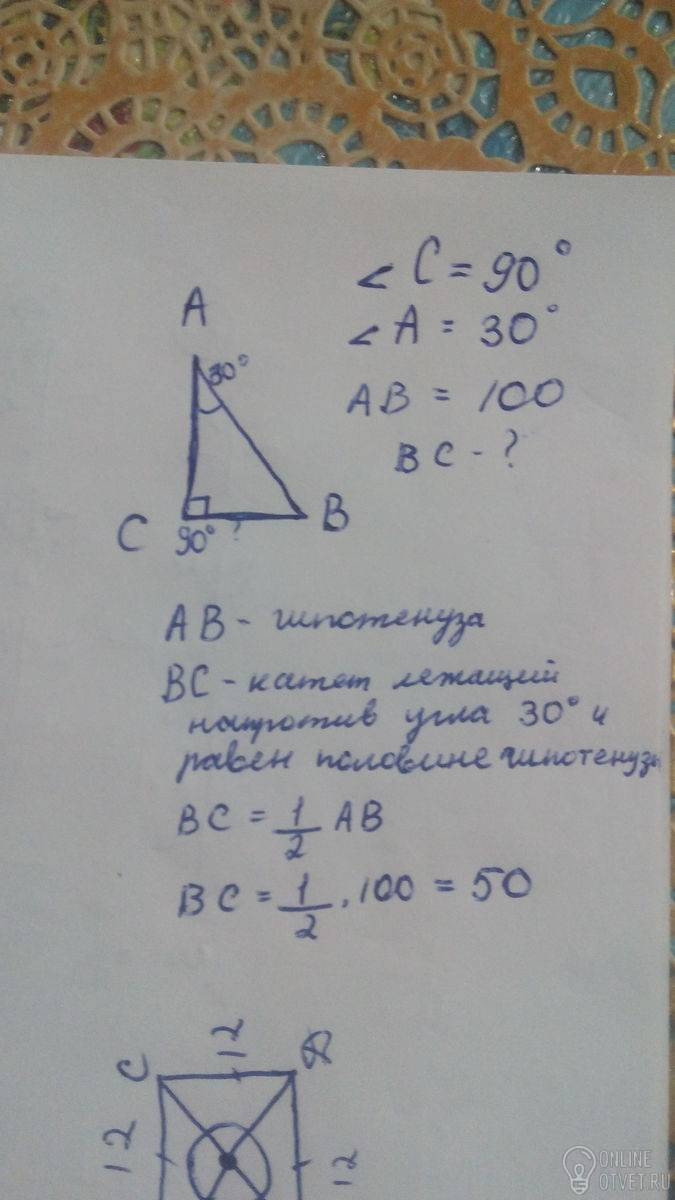 ∠C = 90°
∠A = 30°
AB = 100
BC - ?
A
30°
C
90°
?
B
AB - гипотенуза
BC - катет лежащий
напротив угла 30° и
равен половине гипотенузы
BC = 1/2 AB
BC = 1/2 · 100 = 50
12
C
12
12
ONLINE
OTVET.RU